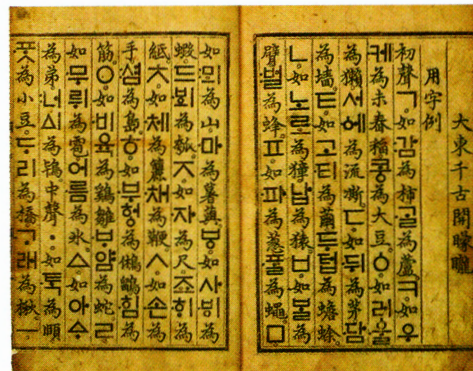 大東千古開朦朧
用字例
初聲ㄱ。如감為柿。ᄀᆞᆯ為蘆。ㅋ。如우
케為未舂稻。콩為大豆。ㆁ。如러울
為獺。서에為流凘。ㄷ。如뒤為茅。담
為墻。ㅌ。如고티為繭。두텁為蟾蜍。
ㄴ。如노로為獐。납為猿。ㅂ。如ᄇᆞᆯ為
臂。벌為蜂。ㅍ。如파為葱。ᄑᆞᆯ為蠅。ㅁ
如뫼為山。마為薯藇。ㅸ。如사ᄫᅵ為
蝦。드ᄫᅴ為瓠。ㅈ。如자為尺。죠ᄒᆡ為
紙。ㅊ。如체為籭。채為鞭。ㅅ。如손為
手。셤為島。ㅎ。如부헝為鵂鶹。힘為
筋。ㅇ。如비육為鷄雛。ᄇᆞ얌為蛇。ㄹ
如무뤼為雹。어름為氷。ㅿ。如아ᅀᆞ
為弟。너ᅀᅵ為鴇。中聲ㆍ。如ᄐᆞᆨ為頤。
ᄑᆞᆺ為小豆。ᄃᆞ리為橋。ᄀᆞ래為楸。ㅡ